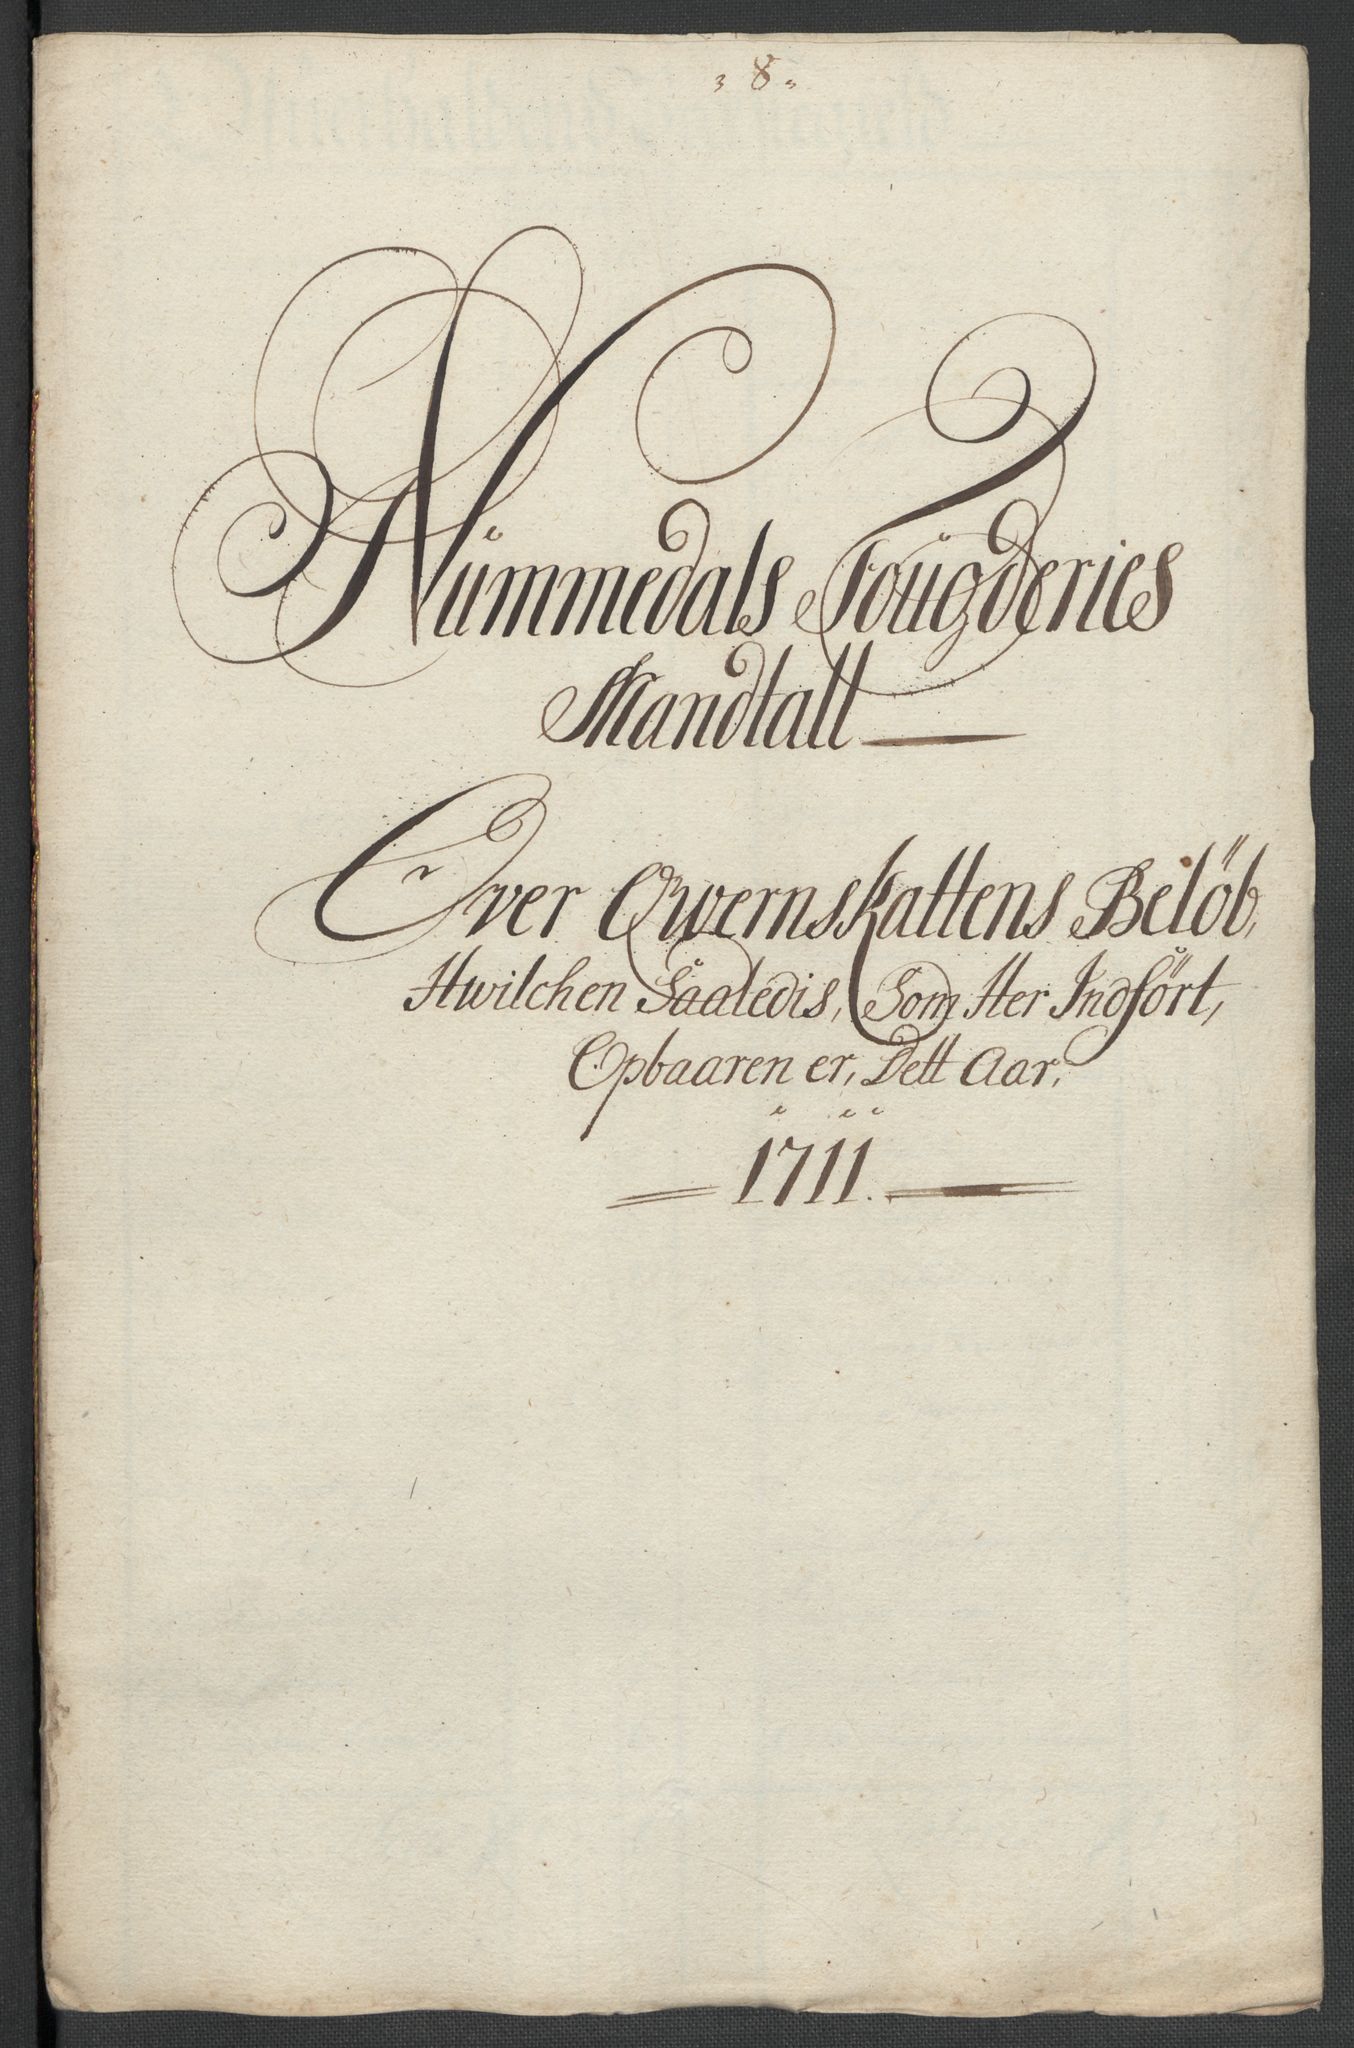 8
Nummedals Fougderies
Mandtall
Over Qwernskattens Belöb,
Hwilchen Saaledis, Som Her Indfört,
Opbaaren er, Dett Aar,
1711.